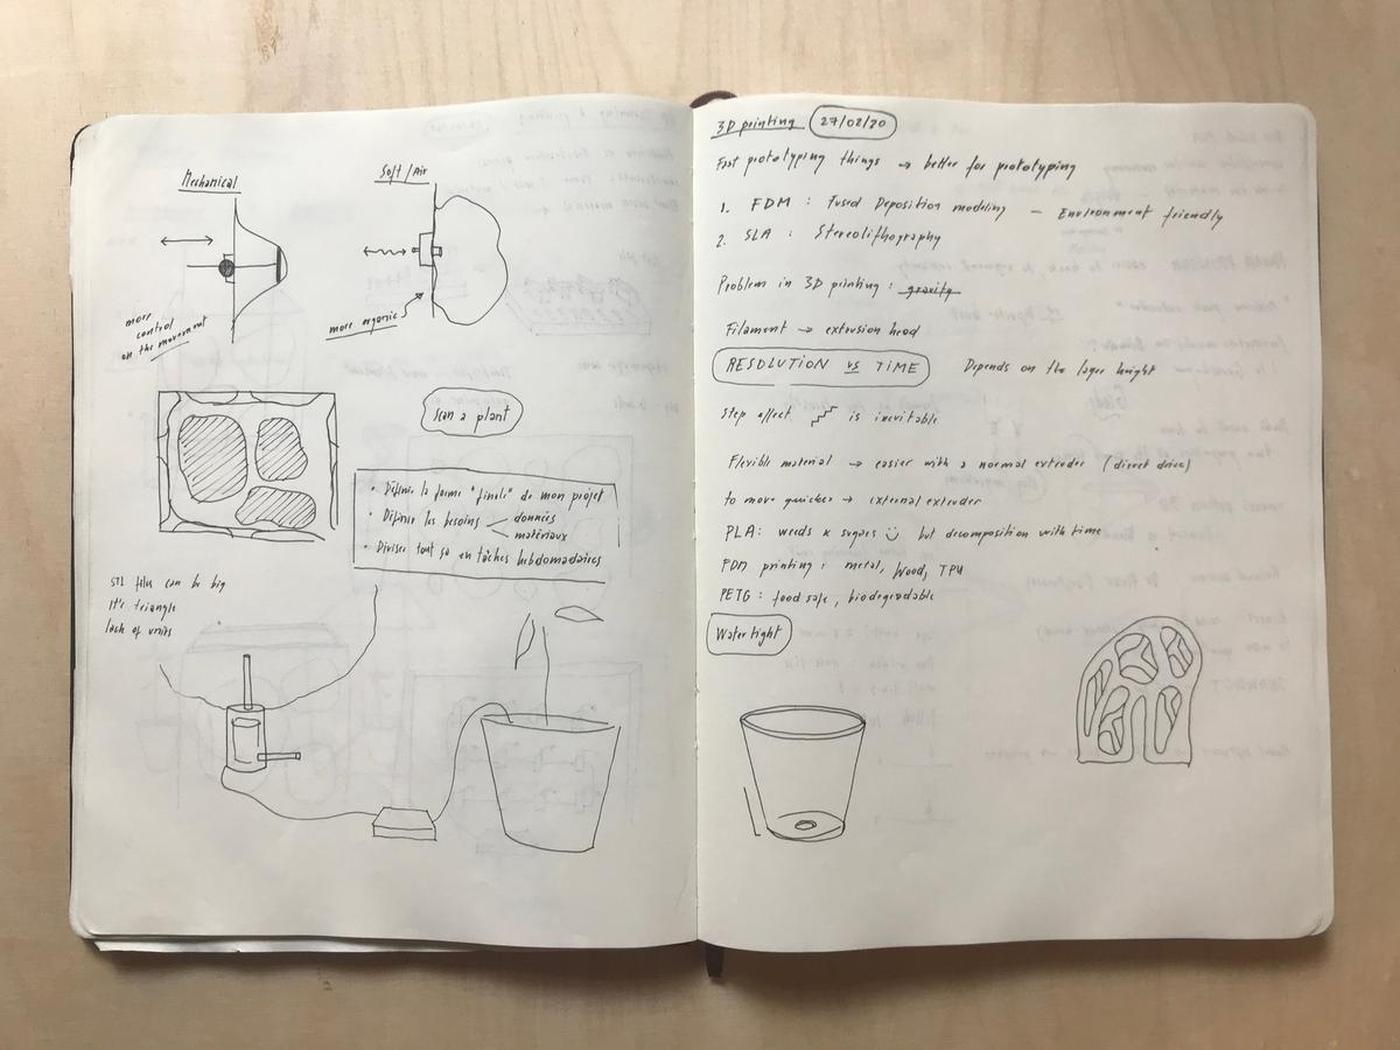 Mechanical
Soft / Air
more
control
on the movement
more organic
Scan a plant
• Définir la forme "finale" de mon projet
• Définir les besoins
données
matériaux
• Diviser tout ça en tâches hebdomadaires
STL files can be big
it's triangle
lack of units
3D printing 27/02/20
Fast prototyping things → better for prototyping
1. FDM : Fused Deposition modeling — Environment friendly
2. SLA : Stereolithography
Problem in 3D printing : gravity
Filament → extrusion head
RESOLUTION vs TIME Depends on the layer height
Step effect is inevitable
Flexible material → easier with a normal extruder (direct drive)
to move quicker → external extruder
PLA : weeds x sugars but decomposition with time
FDM printing : metal, Wood, TPU
PETG : food safe, biodegradable
Water tight